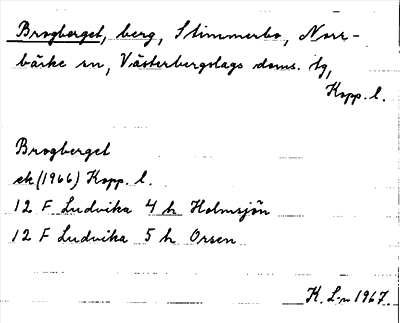 Brogberget, berg, Stimmerbo, Norr-
bärke sn, Västerbergslags doms. tg,
Kopp. l.
Brogberget
ek (1966) Kopp. l.
12 F Ludvika 4 h Holmsjön
12 F Ludvika 5 h Orsen
K. L-n 1967